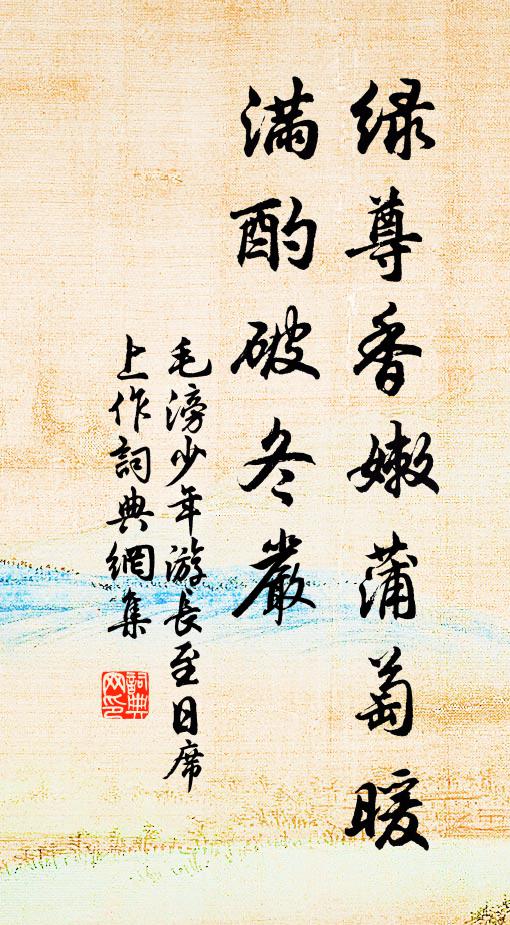 绿尊香嫩蒲萄暖
满酌破冬嚴
毛滂少年游長至日席
上作詞典網集
詞典网印